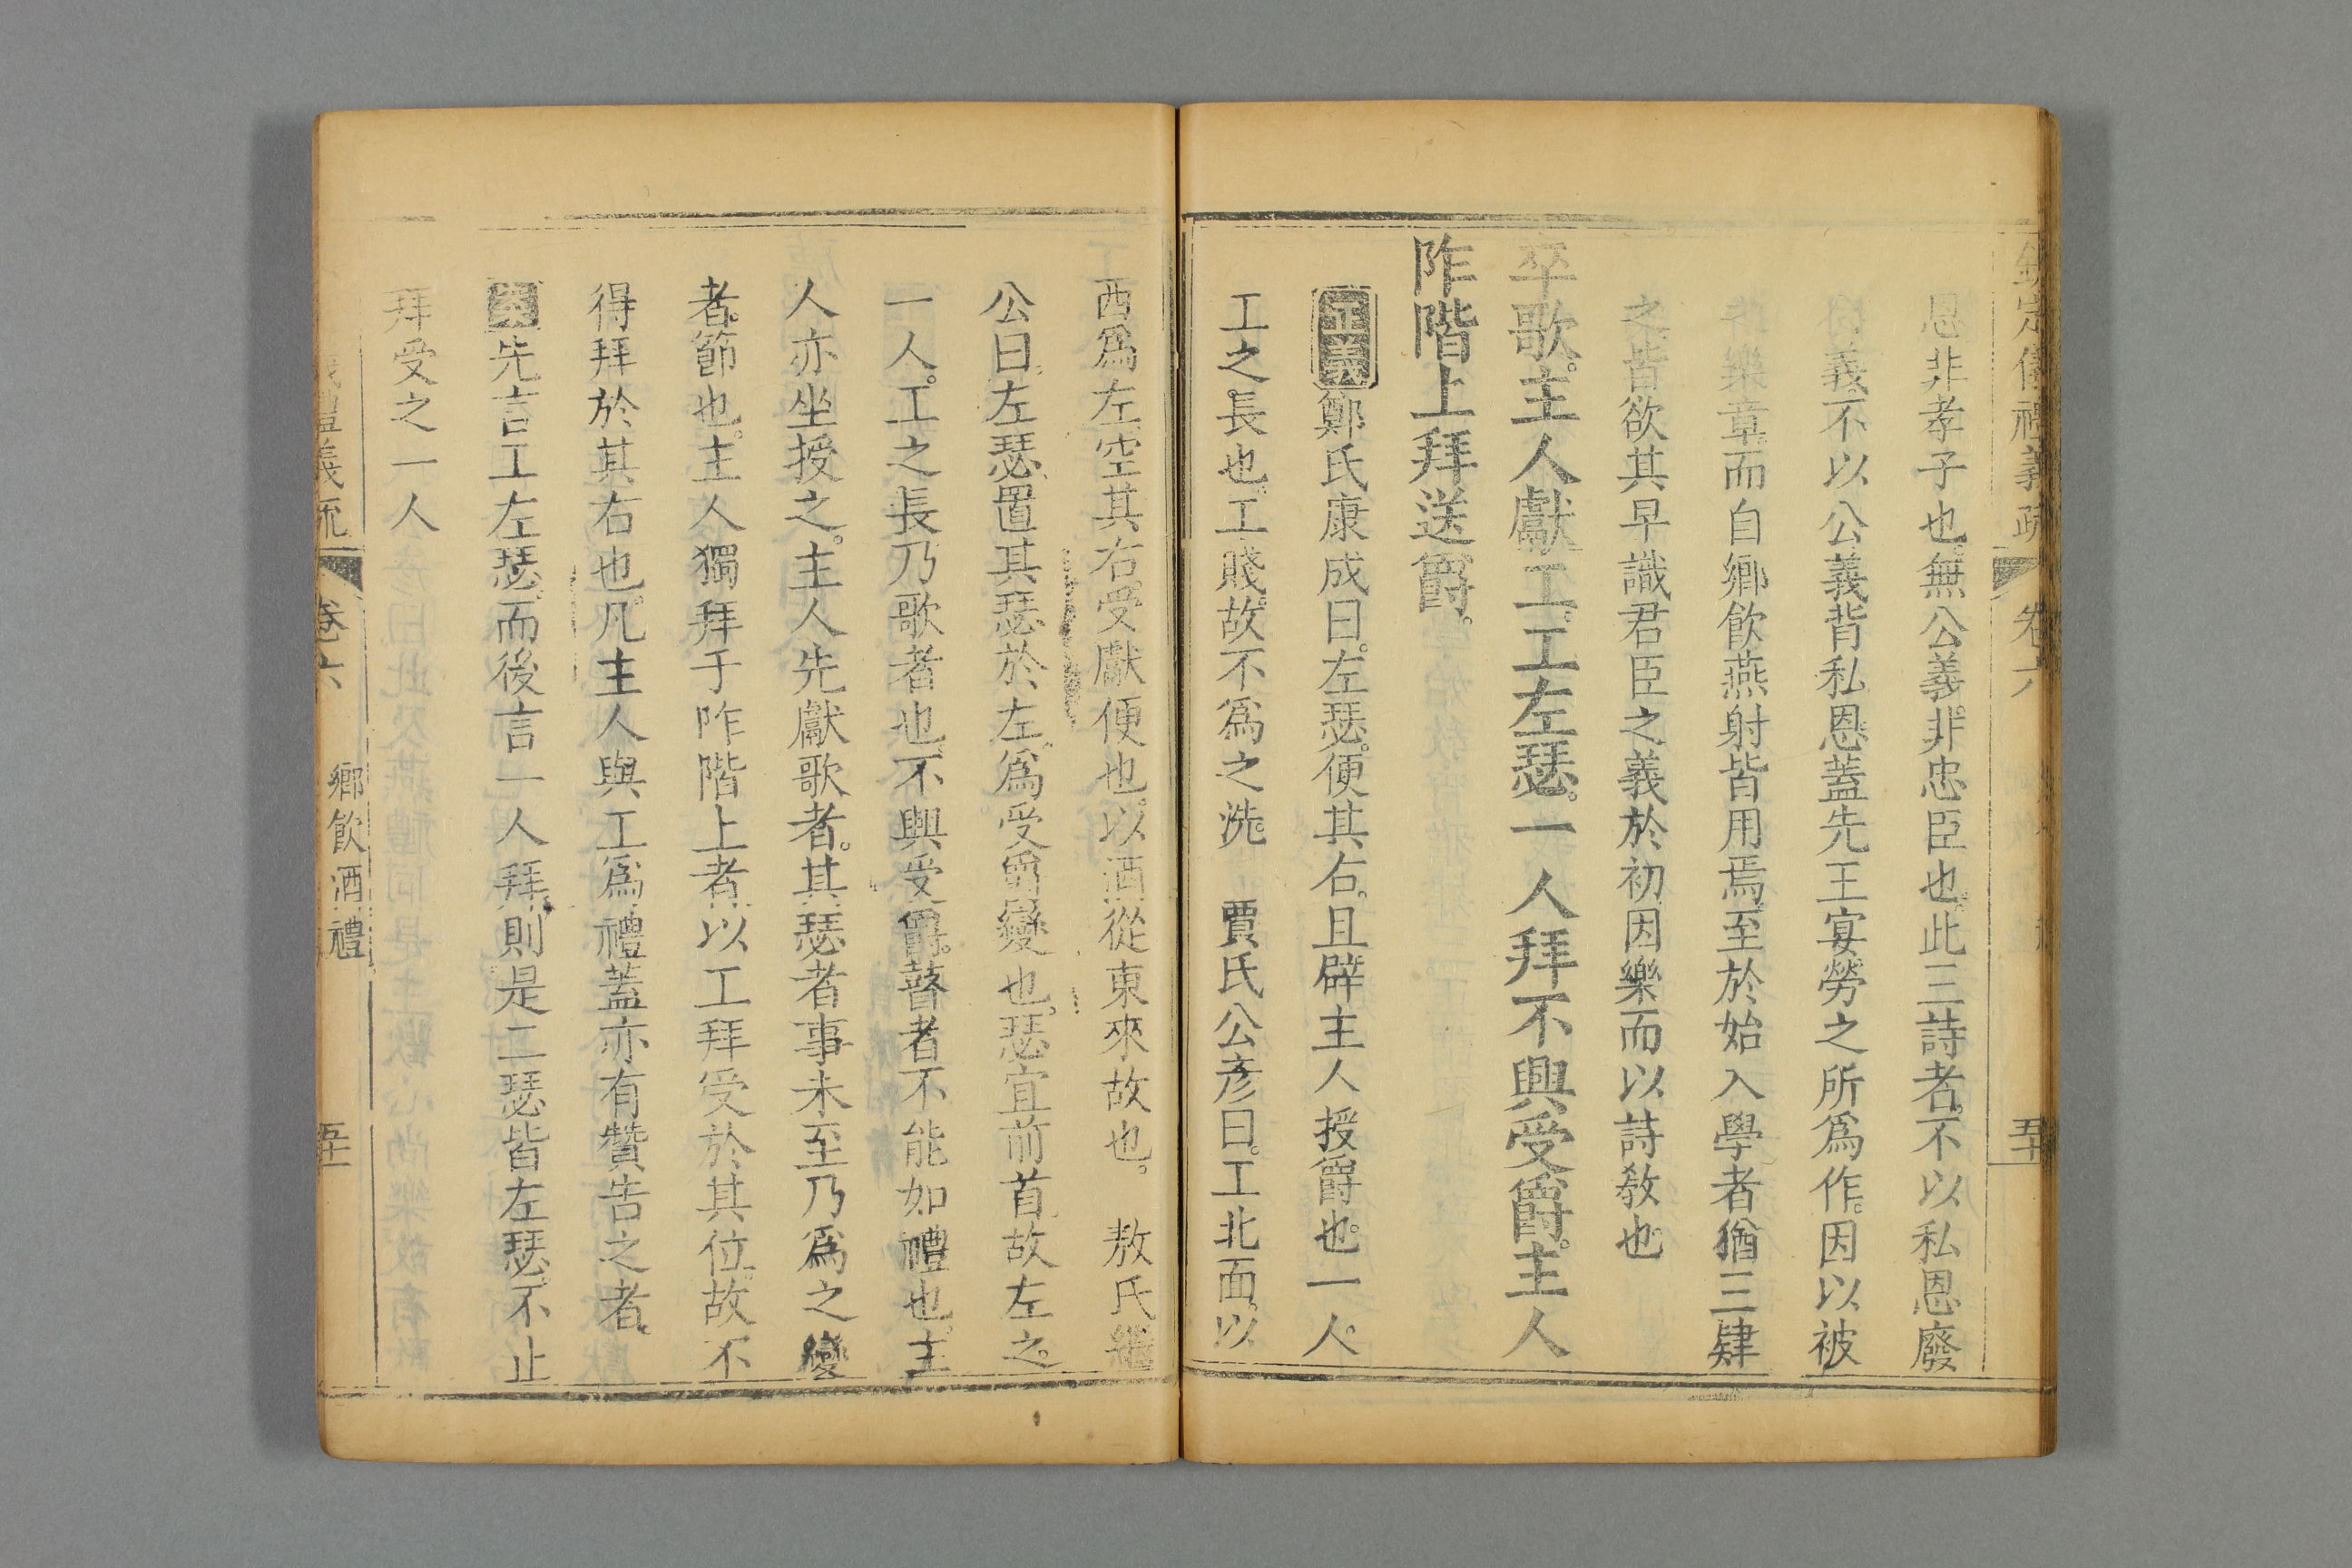 欽定儀禮義疏 卷六 五十
恩非孝子也無公義非忠臣也此三詩者不以私恩廢
義不以公義背私恩蓋先王宴勞之所爲作因以被
樂章而自鄉飲燕射皆用焉至於始入學者猶三肄
之皆欲其早識君臣之義於初因樂而以詩敎也
卒歌。主人獻工。工左瑟。一人拜不興受爵。主人
阼階上拜送爵。
正義鄭氏康成曰。左瑟。便其右。且辟主人授爵也。一人。
工之長也。工賤。故不爲之洗。 賈氏公彥曰。工北面。以
西爲左空其右。受獻便也。以酒從東來故也。 敖氏繼
公曰。左瑟。置其瑟於左。爲受爵變也。瑟宜前首。故左之。
一人。工之長乃歌者也。不興受爵。瞽者不能如禮也。主
人亦坐授之。主人先獻歌者。其瑟者事未至乃爲之變
者。節也。主人獨拜于阼階上者。以工拜受於其位。故不
得拜於其右也。凡主人與工爲禮蓋亦有贊告之者。
先言工左瑟。而後言一人拜。則是二瑟皆左瑟。不止
拜受之一人
義疏 卷六 鄉飲酒禮 五十一